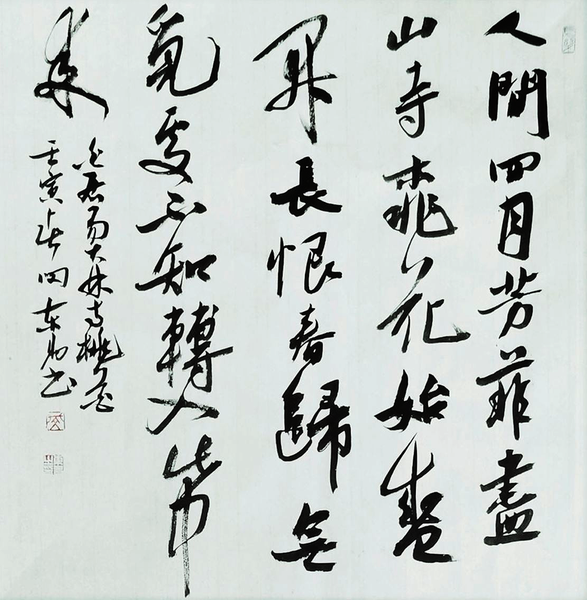 人間四月芳菲盡
山寺桃花始盛
開長恨春歸無
覓處不知轉入此中
來
白居易大林寺桃花
壬寅 田东 书